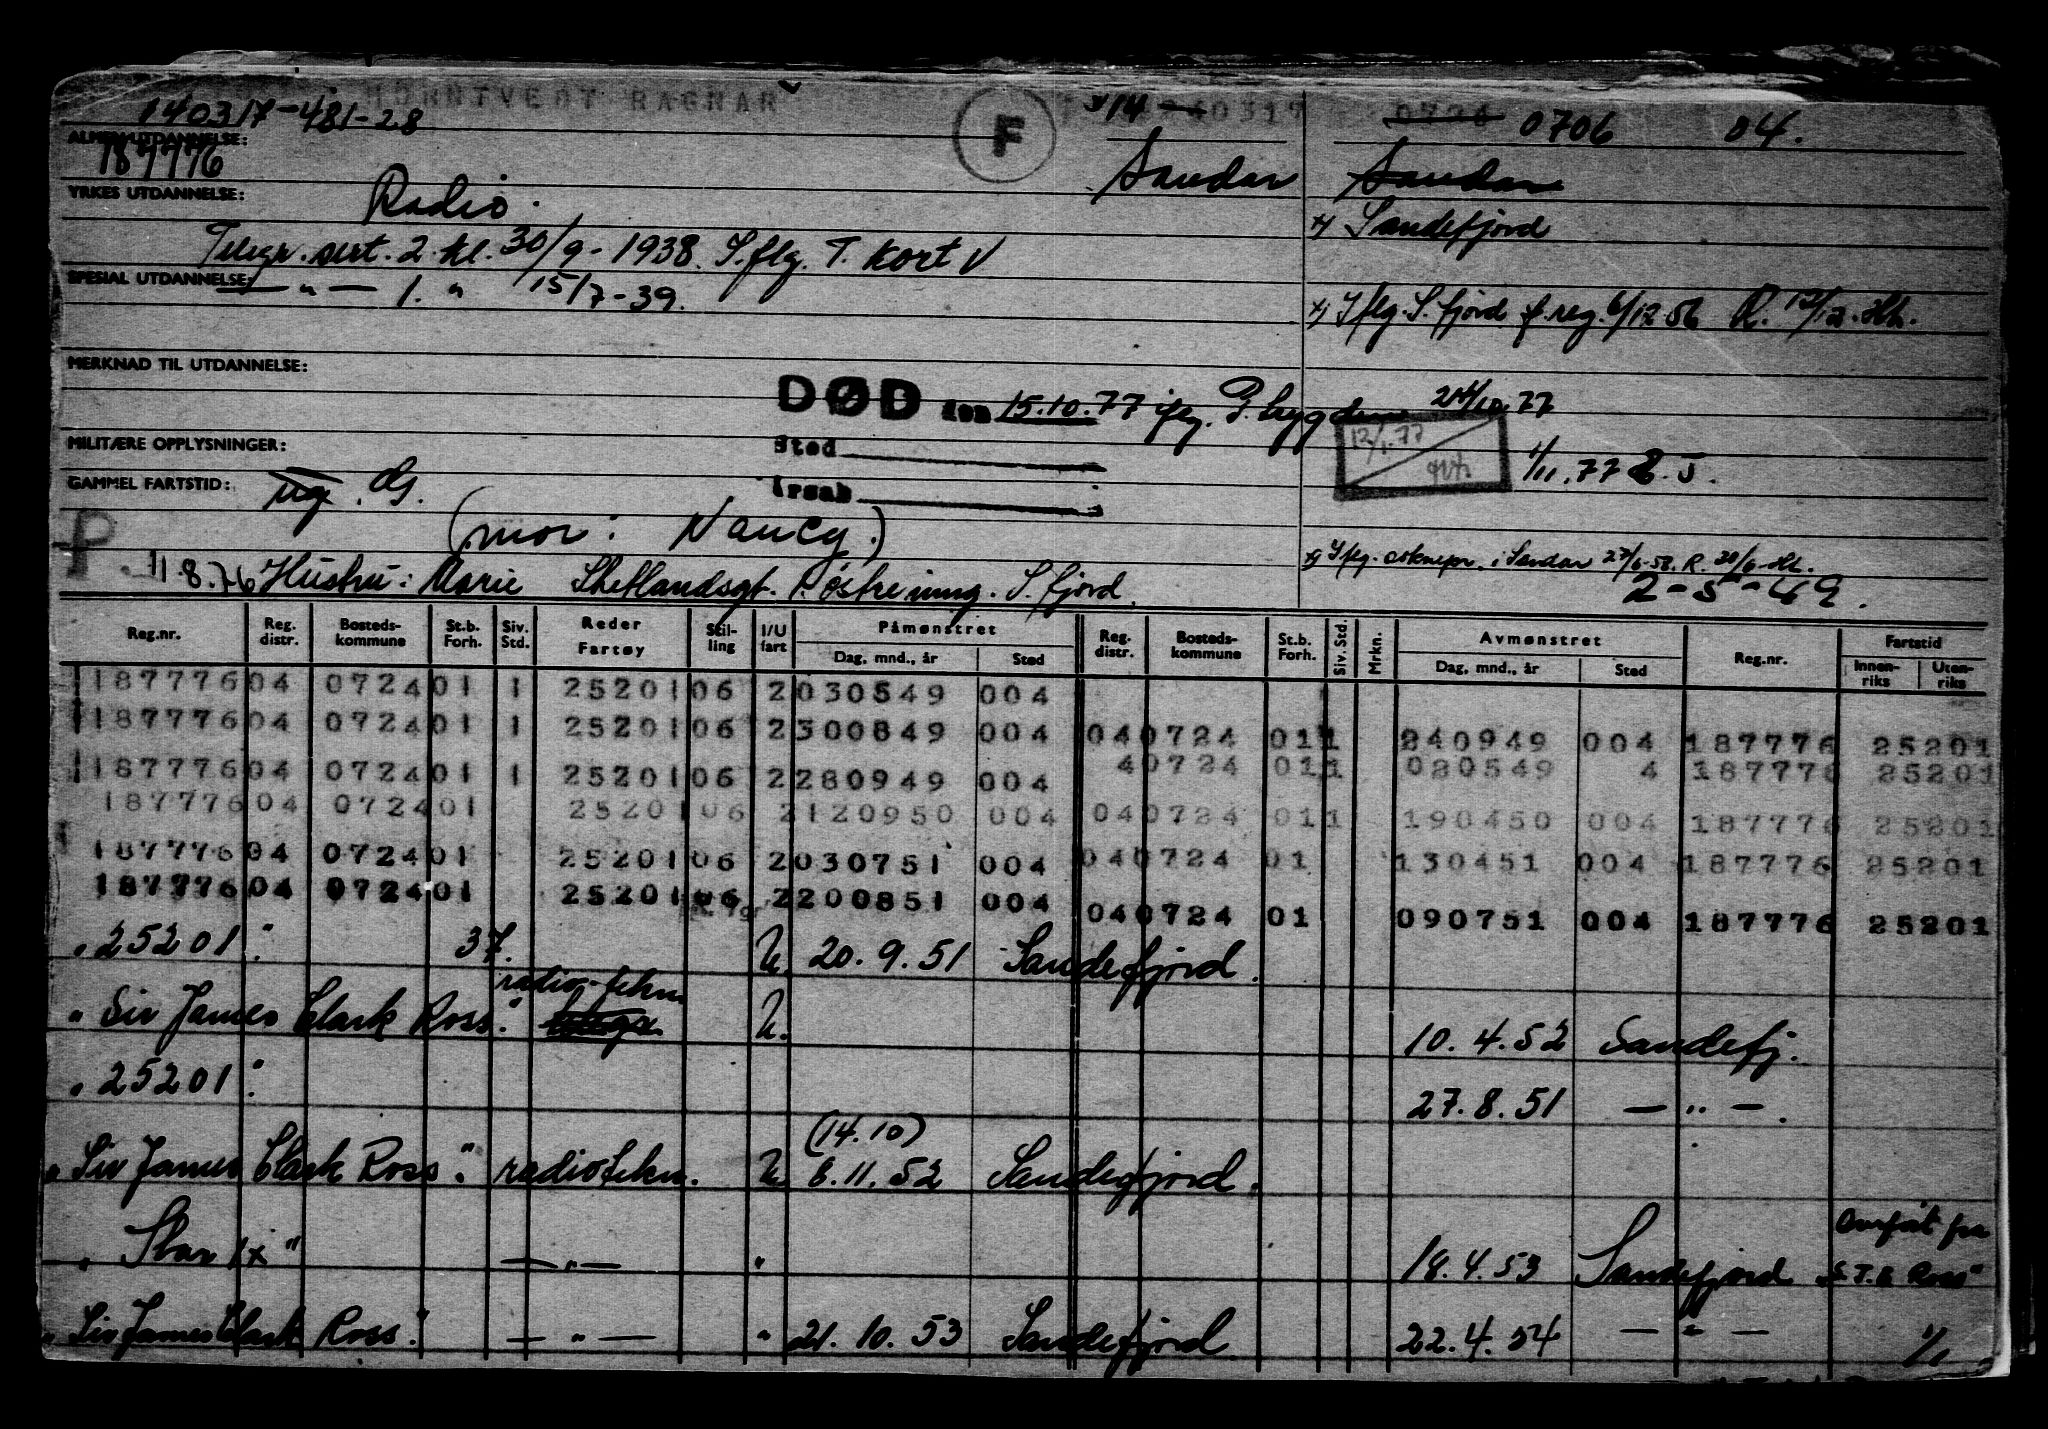 HORNTVEDT RAGNAR
140317-481-28
F
0706 04.
ALMEN UTDANNELSE:
187776
Sandar Sandar
YRKES UTDANNELSE: Radio.
x) Sandefjord
Telegr. sert. 2. kl. 30/9-1938. I.flg. T. kort V
SPESIAL UTDANNELSE: — " — 1. " 15/7-39.
x) Iflg. S.fjord f.reg. 6/12 56 R. 12/12.
MERKNAD TIL UTDANNELSE:
DØD den 15.10.77 ifg. P. bygdene 24/10 77
MILITÆRE OPPLYSNINGER:
Sted
12/1.77
1/11.77
GAMMEL FARTSTID:
Årsak
(mor: Nancy.)
P
11.8.76 Hustru: Marie Shetlandsgt. S.fjord.
2-5-49.
Reg.nr. Reg. distr. Bosteds-kommune St.b. Forh. Siv. Std. Reder Fartøy Stil-ling I/U fart Påmønstret Dag, mnd., år Sted Reg. distr. Bosteds-kommune St.b. Forh. Siv. Std. Mrkn. Avmønstret Dag, mnd., år Sted Reg.nr. Fartstid Innen-riks Uten-riks
187776 04 0724 01 1 25201 06 2 030549 004
187776 04 0724 01 1 25201 06 2 300849 004 04 0724 01 1 240949 004 187776 25201
187776 04 0724 01 1 25201 06 2 280949 004 4 0724 01 1 080549 4 187776 25201
187776 04 0724 01 25201 06 2 120950 004 04 0724 01 1 190450 004 187776 25201
187776 04 0724 01 25201 06 2 030751 004 04 0724 01 130451 004 187776 25201
187776 04 0724 01 25201 06 2 200851 004 04 0724 01 090751 004 187776 25201
"25201" 37. U. 20.9.51 Sandefjord.
"Sir James Clark Ross." radio-tekn. U. 10.4.52 Sandefj.
"25201". 27.8.51 — " —.
(14.10)
"Sir James Clark Ross". radiotekn. U. 6.11.52 Sandefjord.
"Star IX" — " — " 18.4.53 Sandefjord Overført fra "S.J.C. Ross"
"Sir James Clark Ross." — " — " 21.10.53 Sandefjord 22.4.54 — " — 1/1